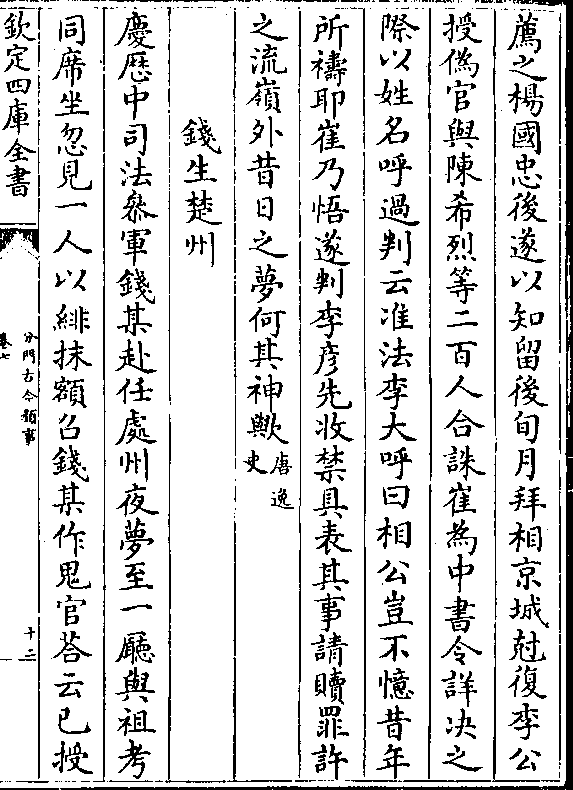 薦之楊國忠後遂以知留後旬月拜相京城尅復李公
授偽官與陳希烈等二百人合誅崔為中書令詳决之
際以姓名呼過判云准法李大呼曰相公豈不憶昔年
所禱耶崔乃悟遂判李彦先收禁具表其事請贖罪許
之流嶺外昔日之夢何其神歟唐逸史
錢生楚州
慶歷中司法叅軍錢某赴任處州夜夢至一廳與祖考
同席坐忽見一人以緋抹額召錢某作鬼官荅云已授
欽定四庫全書
分門古今類事
卷七
十二